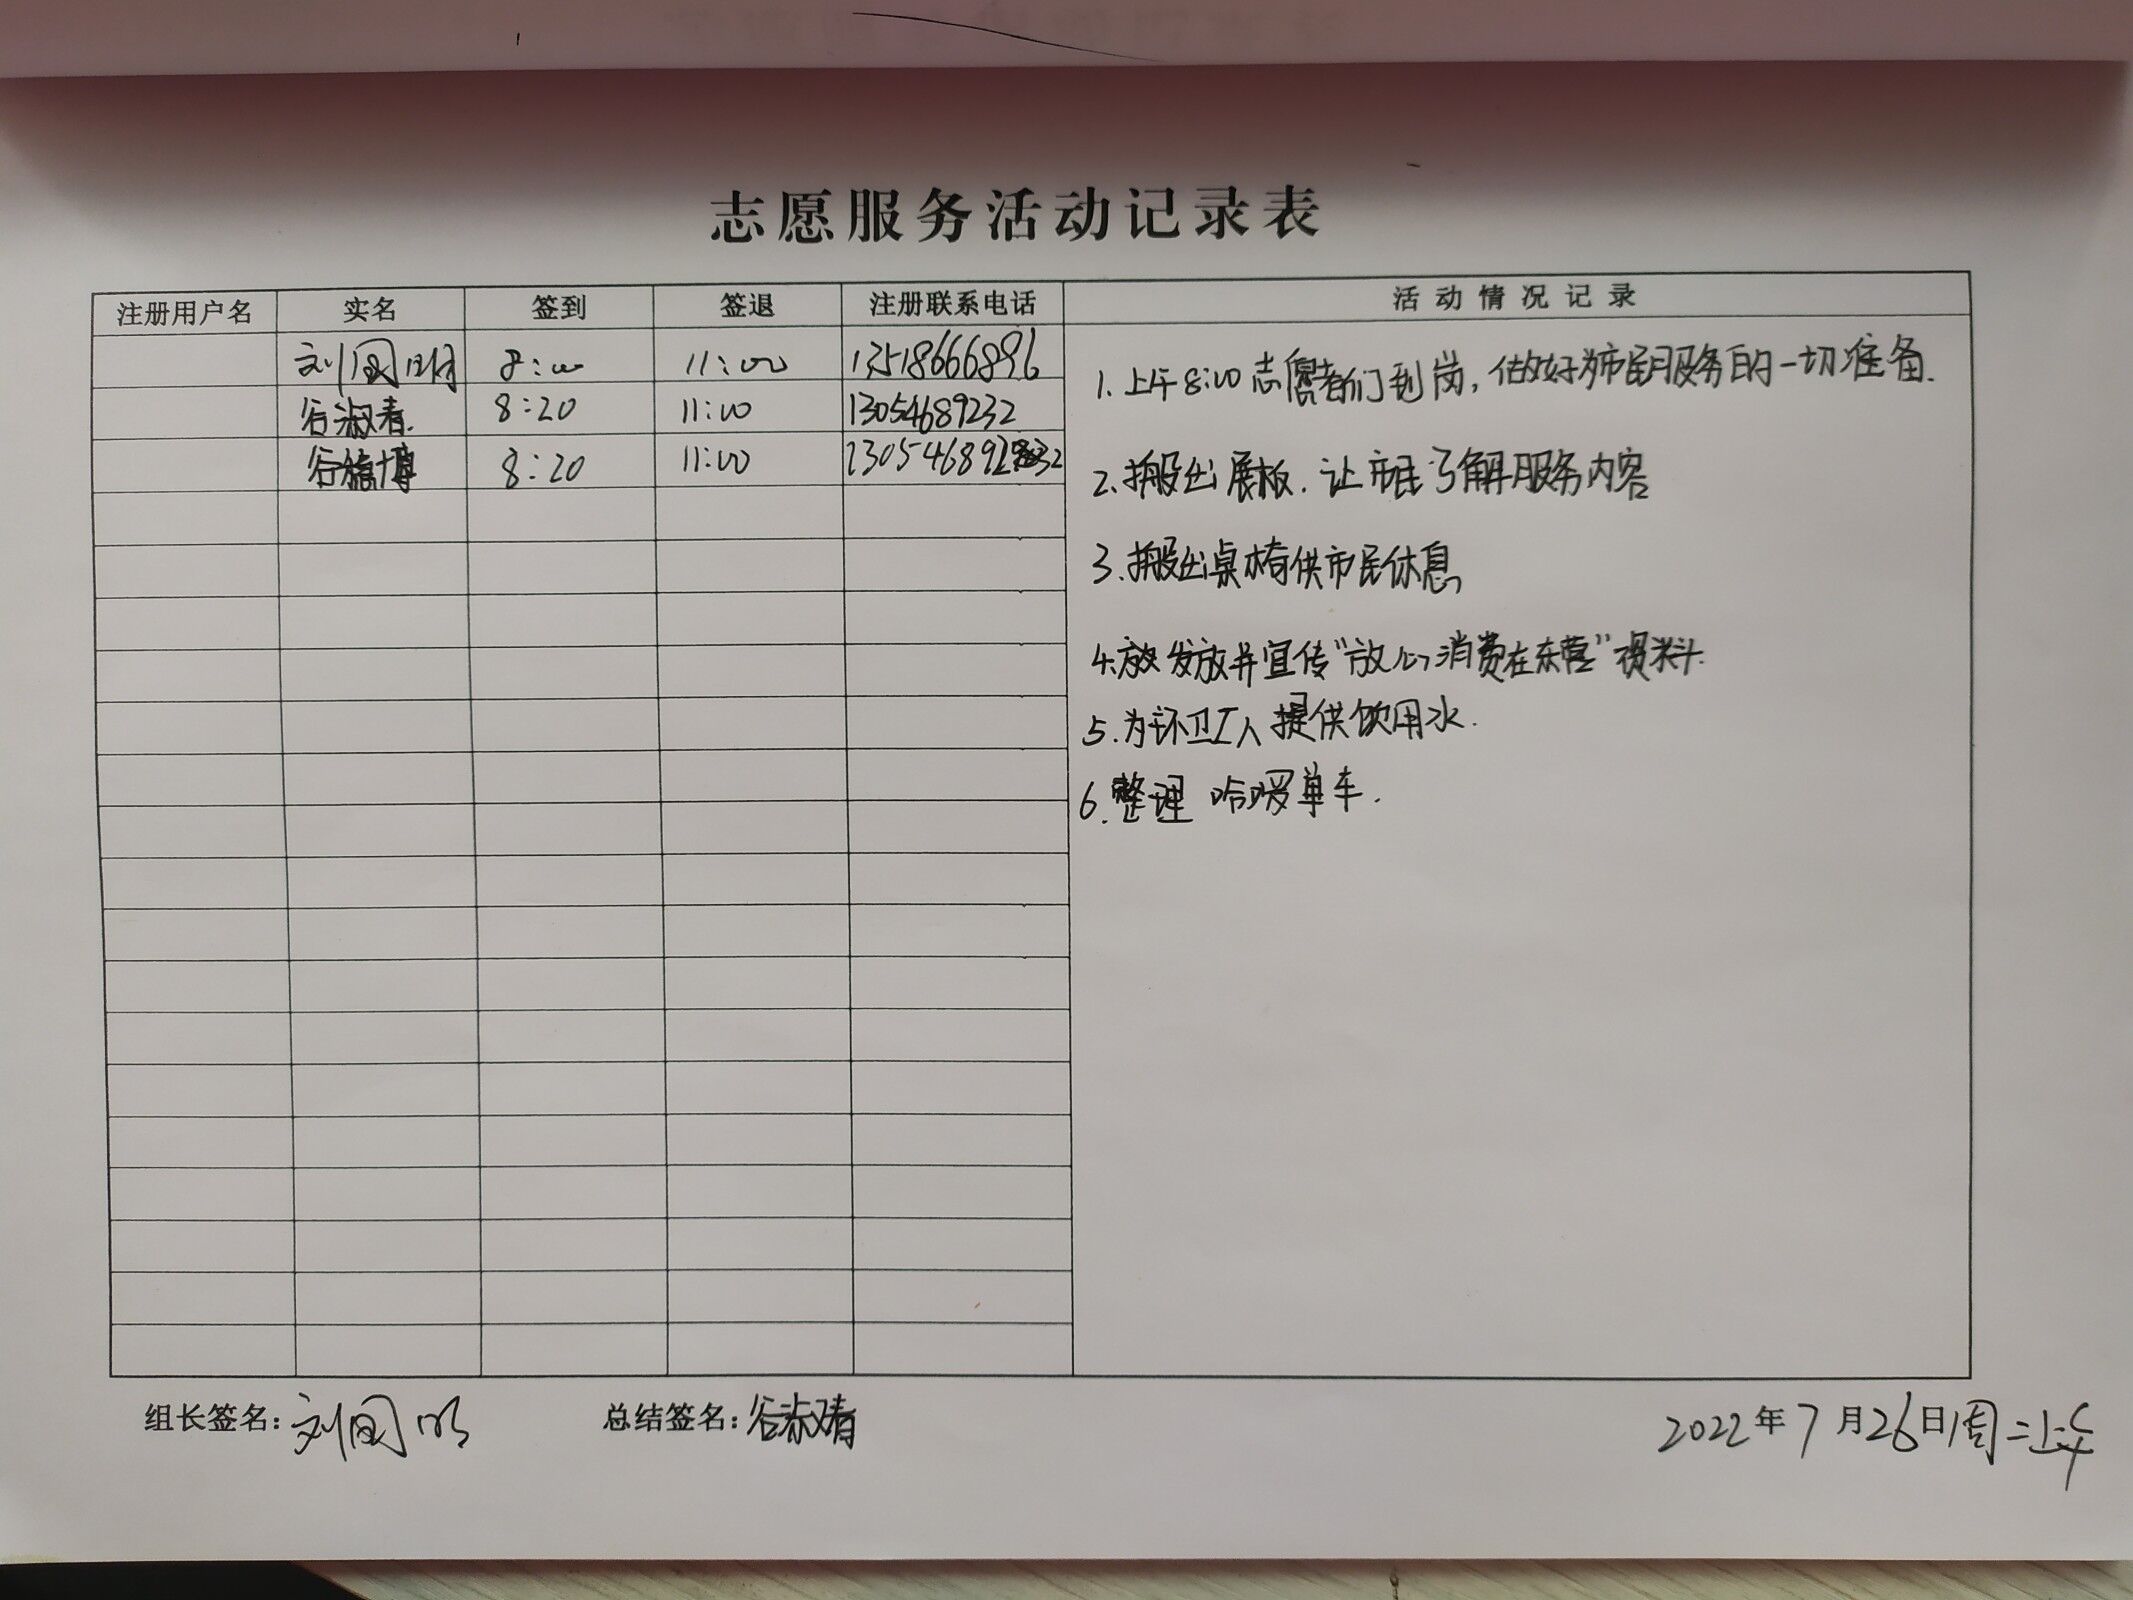 志愿服务活动记录表
注册用户名 实名 签到 签退 注册联系电话 活动情况记录
刘国明 8:00 11:00 13518666896
谷淑春. 8:20 11:00 13054689232
谷 博 8:20 11:00 130546892
1. 上午8:00志愿者们到岗,做好为市民服务的一切准备.
2. 搬出展板.让市民了解服务内容
3. 搬出桌椅供市民休息
4. 发放并宣传"放心消费在东营"资料
5. 为环卫工人提供饮用水.
6. 整理 单车.
组长签名: 刘国明 总结签名: 谷淑春 2022年7月26日周二上午